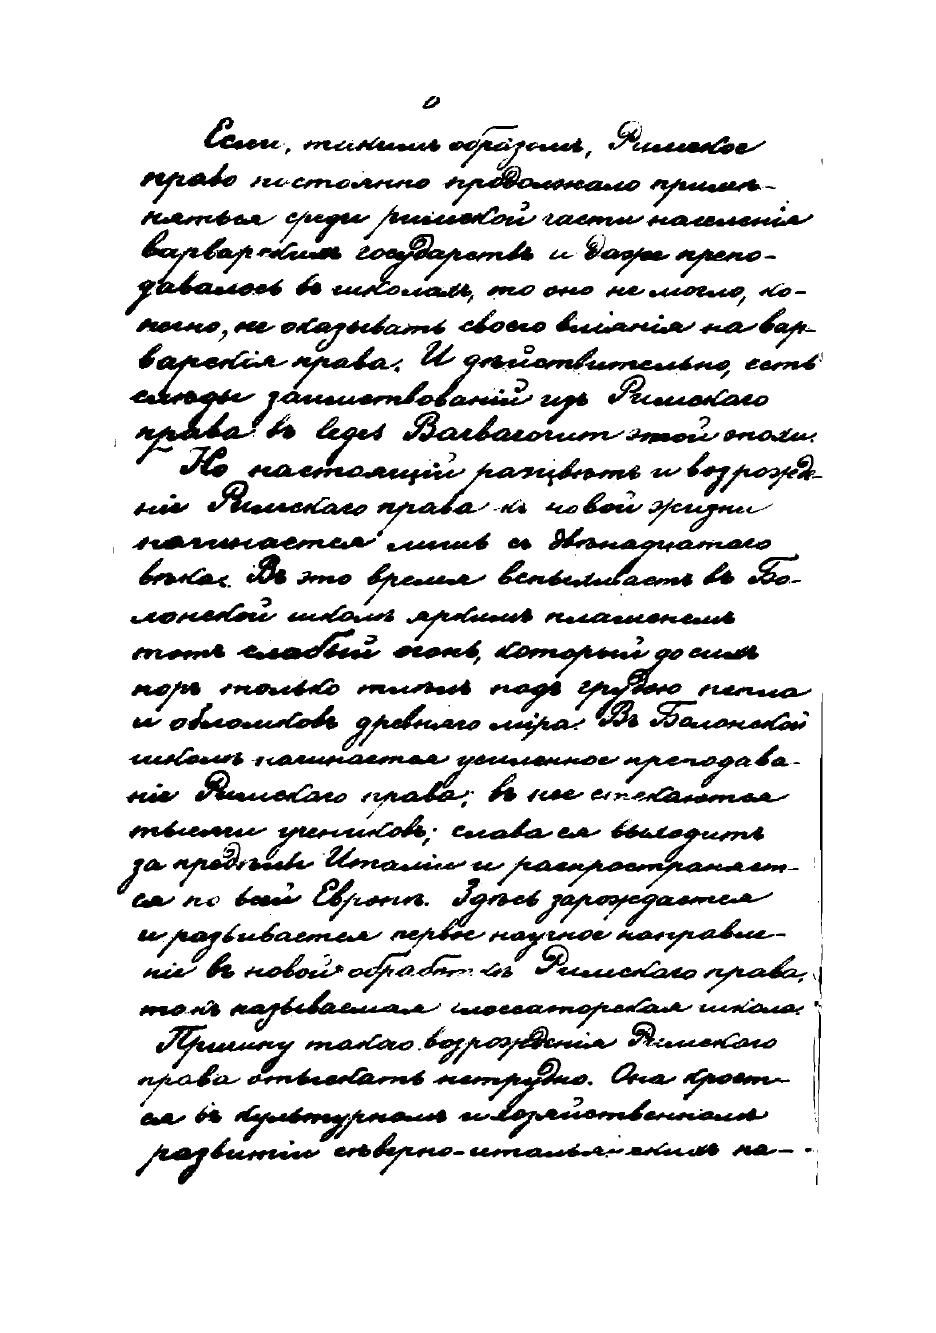 Если, такимъ образомъ, Римское
право постоянно продолжало примѣ-
няться среди римской части населенія
варварскихъ государствъ и даже препо-
давалось въ школахъ, то оно не могло, ко-
нечно, не оказывать своего вліянія на вар-
варскія права. И дѣйствительно, есть
слѣды заимствованій изъ Римскаго
права въ leges Barbarorum этой эпохи.
Но настоящій расцвѣтъ и возрожде-
ніе Римскаго права къ новой жизни
начинается лишь съ двѣнадцатаго
вѣка. Въ это время вспыхиваетъ въ Бо-
лонской школѣ яркимъ пламенемъ
тотъ слабый огонь, который до сихъ
поръ только тлѣлъ подъ грудою пепла
и обломковъ древняго міра. Въ Болонской
школѣ начинается усиленное преподава-
ніе Римскаго права; въ нее стекаются
тысячи учениковъ; слава ея выходитъ
за предѣлы Италіи и распространяет-
ся по всей Европѣ. Здѣсь зарождается
и развивается первое научное направле-
ніе въ новой обработкѣ Римскаго права,
такъ называемая глоссаторская школа.
Причину такого возрожденія Римскаго
права отыскать нетрудно. Она кроет-
ся въ культурномъ и хозяйственномъ
развитіи сѣверно-итальянскихъ на-